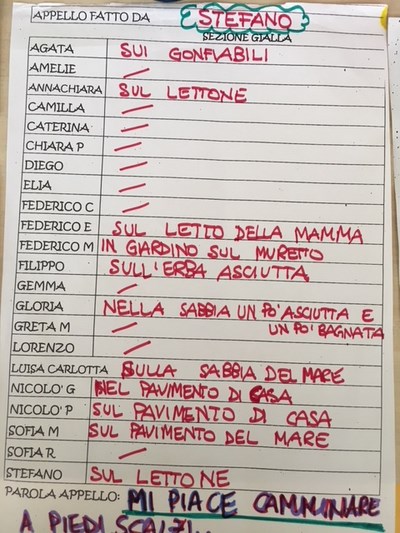 APPELLO FATTO DA STEFANO
SEZIONE GIALLA
AGATA SUI GONFIABILI
AMELIE /
ANNACHIARA SUL LETTONE
CAMILLA /
CATERINA /
CHIARA P /
DIEGO /
ELIA /
FEDERICO C /
FEDERICO E SUL LETTO DELLA MAMMA
FEDERICO M IN GIARDINO SUL MURETTO
FILIPPO SULL'ERBA ASCIUTTA
GEMMA /
GLORIA NELLA SABBIA UN PO' ASCIUTTA E
GRETA M / UN PO' BAGNATA
LORENZO /
LUISA CARLOTTA SULLA SABBIA DEL MARE
NICOLO' G NEL PAVIMENTO DI CASA
NICOLO' P SUL PAVIMENTO DI CASA
SOFIA M SUL PAVIMENTO DEL MARE
SOFIA R. /
STEFANO SUL LETTONE
PAROLA APPELLO: MI PIACE CAMMINARE
A PIEDI SCALZI...